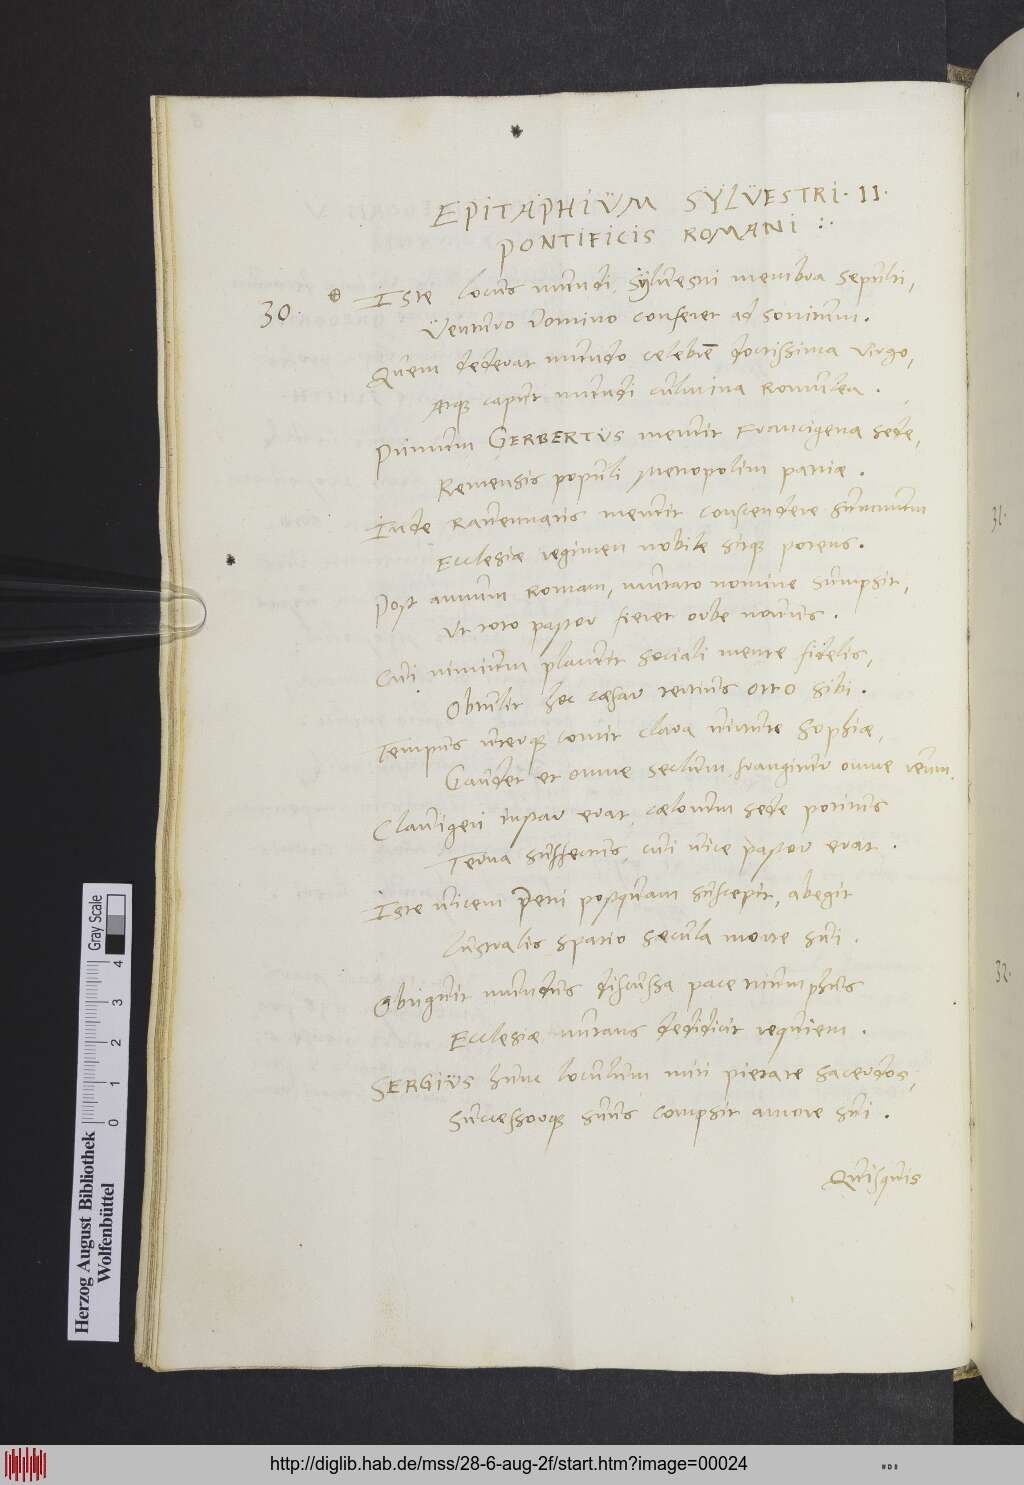 EPITAPHIUM SYLVESTRI. II.
PONTIFICIS ROMANI :.
30.
Iste locus mundi Sylvestri membra sepulti,
Venturo domino conferet ad sonitum.
Quem dederat mundo celebrē doctissima virgo,
Atq; caput mundi culmina Romulea.
Primum GERBERTUS meruit Francigena sede,
Remensis populi metropolim patriæ.
Inde Ravennatis meruit conscendere summum
Ecclesiæ regimen nobile sitq; potens.
Post annum Romam, mutato nomine sumpsit,
Ut toto pastor fieret orbe novus.
Cui nimium placuit sociali mente fidelis,
Obtulit hoc cæsar tertius OTTO sibi.
Tempus uterq; comit clara virtute Sophiæ,
Gaudet et omne seclum, frangitur omne reum.
Clavigeri instar erat, cælorum sede potitus
Terna suffectus, cui vice pastor erat.
Iste vicem Petri postquam suscepit, abegit
Lustralis spatio sæcula morte sui.
Obriguit mundus discussa pace triumphus
Ecclesiæ nutans dedidicit requiem.
SERGIUS hunc loculum miti pietate sacerdos,
Successorq; suus compsit amore sui.
Quisquis
31.
32.
Herzog August Bibliothek
Wolfenbüttel
0 1 2 3 4
Gray Scale
http://diglib.hab.de/mss/28-6-aug-2f/start.htm?image=00024